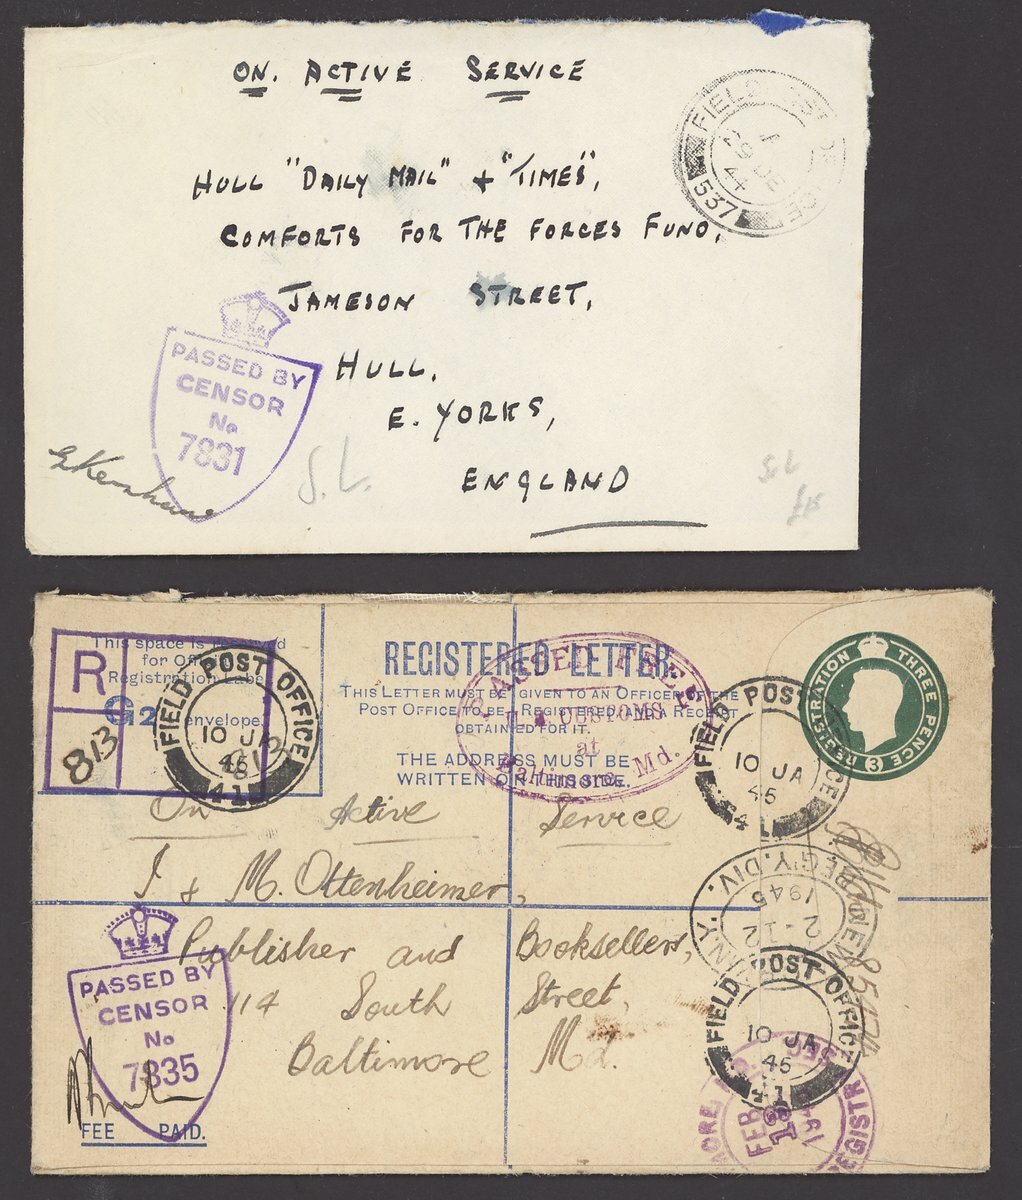 ON. ACTIVE SERVICE
FIELD POST OFFICE
A
29 DE
44
537
HULL "DAILY MAIL" + "TIMES",
COMFORTS FOR THE FORCES FUND,
JAMESON STREET,
HULL,
E. YORKS,
ENGLAND
PASSED BY
CENSOR
No
7831
S.L.
This space is
for
Registration Label
G2 envelope.
R
813
FIELD POST OFFICE
10 JA
45
41
REGISTERED LETTER.
THIS LETTER MUST BE GIVEN TO AN OFFICER OF THE
POST OFFICE TO BE REGISTERED, AND A RECEIPT
OBTAINED FOR IT.
THE ADDRESS MUST BE
WRITTEN ON THIS SIDE.
PASSED FREE
CUSTOMS
at
Baltimore, Md.
REGISTRATION THREE PENCE
3
FIELD POST OFFICE
10 JA
45
On Active Service
I & M. Ottenheimer,
Publisher and Booksellers,
114 South Street,
Baltimore Md.
REG'Y. DIV.
N.Y.
2-12
1945
FIELD POST OFFICE
10 JA
45
41
PASSED BY
CENSOR
No
7835
FEE PAID.
FEB
194